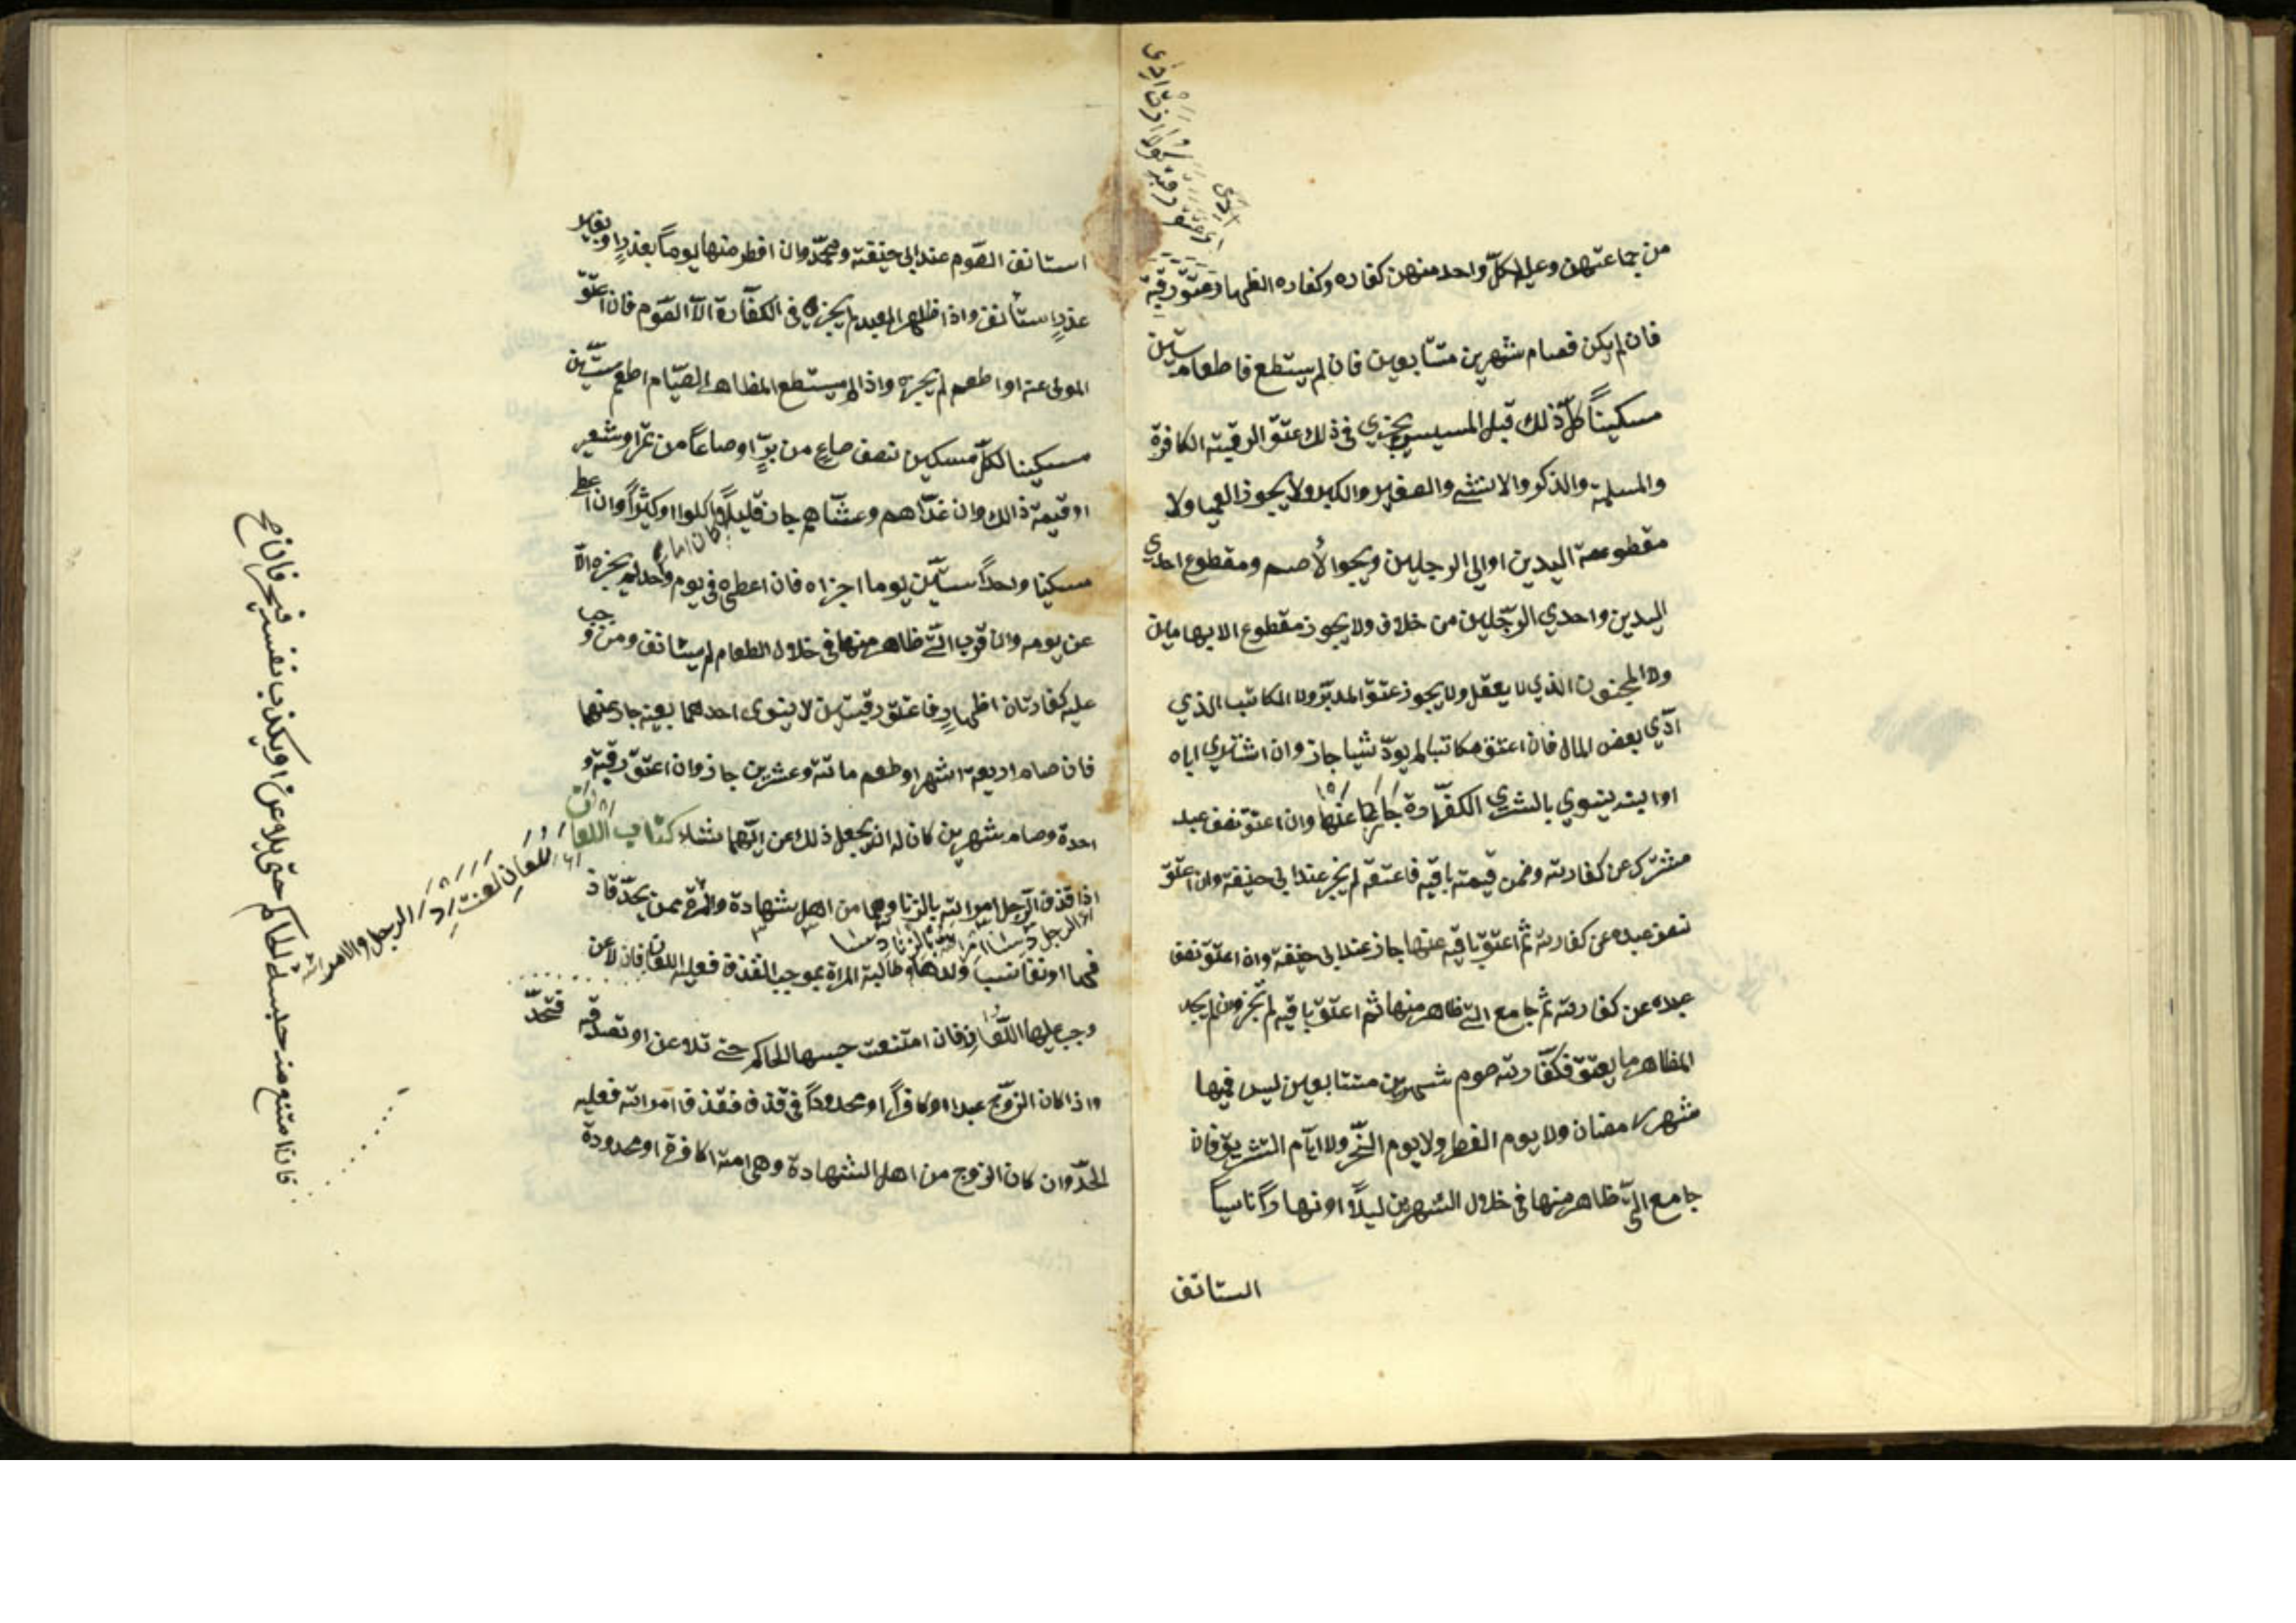 من جماعتهن وعليه لكلّ واحد منهن كفاره وكفاره الظهار عتق رقبة
فان لم يكن فصام شهرين متتابعين فان لم يستطع فاطعام ستين
مسكيناً كلّ ذلك قبل المسيس ويجزي في ذلك عتق الرقبة الكافرة
والمسلمة والذكر والانثى والصغير والكبير ولا يجوز العميا ولا
مقطوعة اليدين او الرجلين ويجوز الأصم ومقطوع احدي
اليدين واحدي الرّجلين من خلاف ولا يجوز مقطوع الابهامين
ولا المجنون الذي لا يعقل ولا يجوز عتق المدبّر ولا المكاتب الذي
ادّي بعض المال فان اعتق مكاتبا لم يودّ شيا جاز وان اشتري اباه
او ابنه ينوي بالشري الكفّارة جاز عنها وان اعتق نصف عبد
مشترك عن كفارته وضمن قيمته باقيه فاعتقه لم يجز عند ابي حنيفة وان اعتق
نصف عبده عن كفارته ثم اعتق باقيه عنها جاز عند ابي حنيفة وان اعتق نصف
عبده عن كفارته ثم جامع التي ظاهر منها ثم اعتق باقيه لم تجز وان لم يجد
المظاهر ما يعتق فكفّارته صوم شهرين متتابعين ليس فيها
شهر رمضان ولا يوم الفطر ولا يوم النّحر ولا ايّام التشريق فان
جامع الّتي ظاهر منها في خلال الشهرين ليلًا او نهاراً ناسياً
استانف
استانف الصّوم عند ابي حنيفة ومحمّد وان افطر منها يوماً بعذرٍ او بغير
عذرٍ استأنف واذا ظاهر العبد لم يجزه في الكفّارة الّا الصّوم فان اعتق
المولى عنه او اطعم لم يجزه واذا لم يستطع المظاهر الصّيام اطعم ستّين
مسكينا لكلّ مسكين نصف صاع من برٍّ او صاعاً من تمر او شعير
او قيمة ذالك وان غدّاهم وعشّاهم جاز قليلًا اكلوا او كثيراً وان اعطى
مسكينا واحداً ستّين يوما اجزاه فان اعطى في يوم واحد لم يجزه الّا
عن يومه وان قرب الّتي ظاهر منها في خلال الطعام لم يستانف ومن وجب
عليه كفارتان اظهارٍ فاعتق رقبتين لا ينوى احدهما بعينه جاز عنهما
فان صام اربعة اشهر او طعم مائة وعشرين جاز وان اعتق رقبة و
احدة وصام شهرين كان له ان يجعل ذلك عن ايّهما شاء كتاب اللعان
اذا قذف الرّجل امراته بالزنا وهما من اهل شهادة والمراة ممن يحدّ قاذ
فها او نفا نسب ولدها وطالبة المراة بموجب القذف فعليه اللعان فان لاعن
وجب عليها اللّعان فان امتنعت حبسها الحاكم حتى تلاعن او تصدقه فتحدّ
واذا كان الزوج عبدا او كافراً او محدوداً في قذف فقذف امراته فعليه
الحدّ وان كان الزوج من اهل الشهادة وهي امة اكافرة او محدودة
فان امتنع منه حبسه الحاكم حتى يلاعن او يكذب نفسه فيحد فان